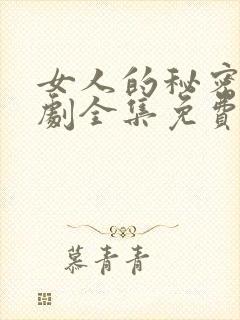 女人的秘密
劇全集免費
慕青青